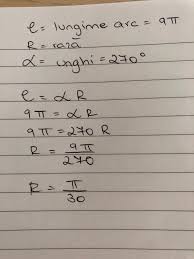 ℓ = lungime arc = 9π
R = rază
α = unghi = 270°
ℓ = αR
9π = αR
9π = 270 R
R = 9π/270
R = π/30